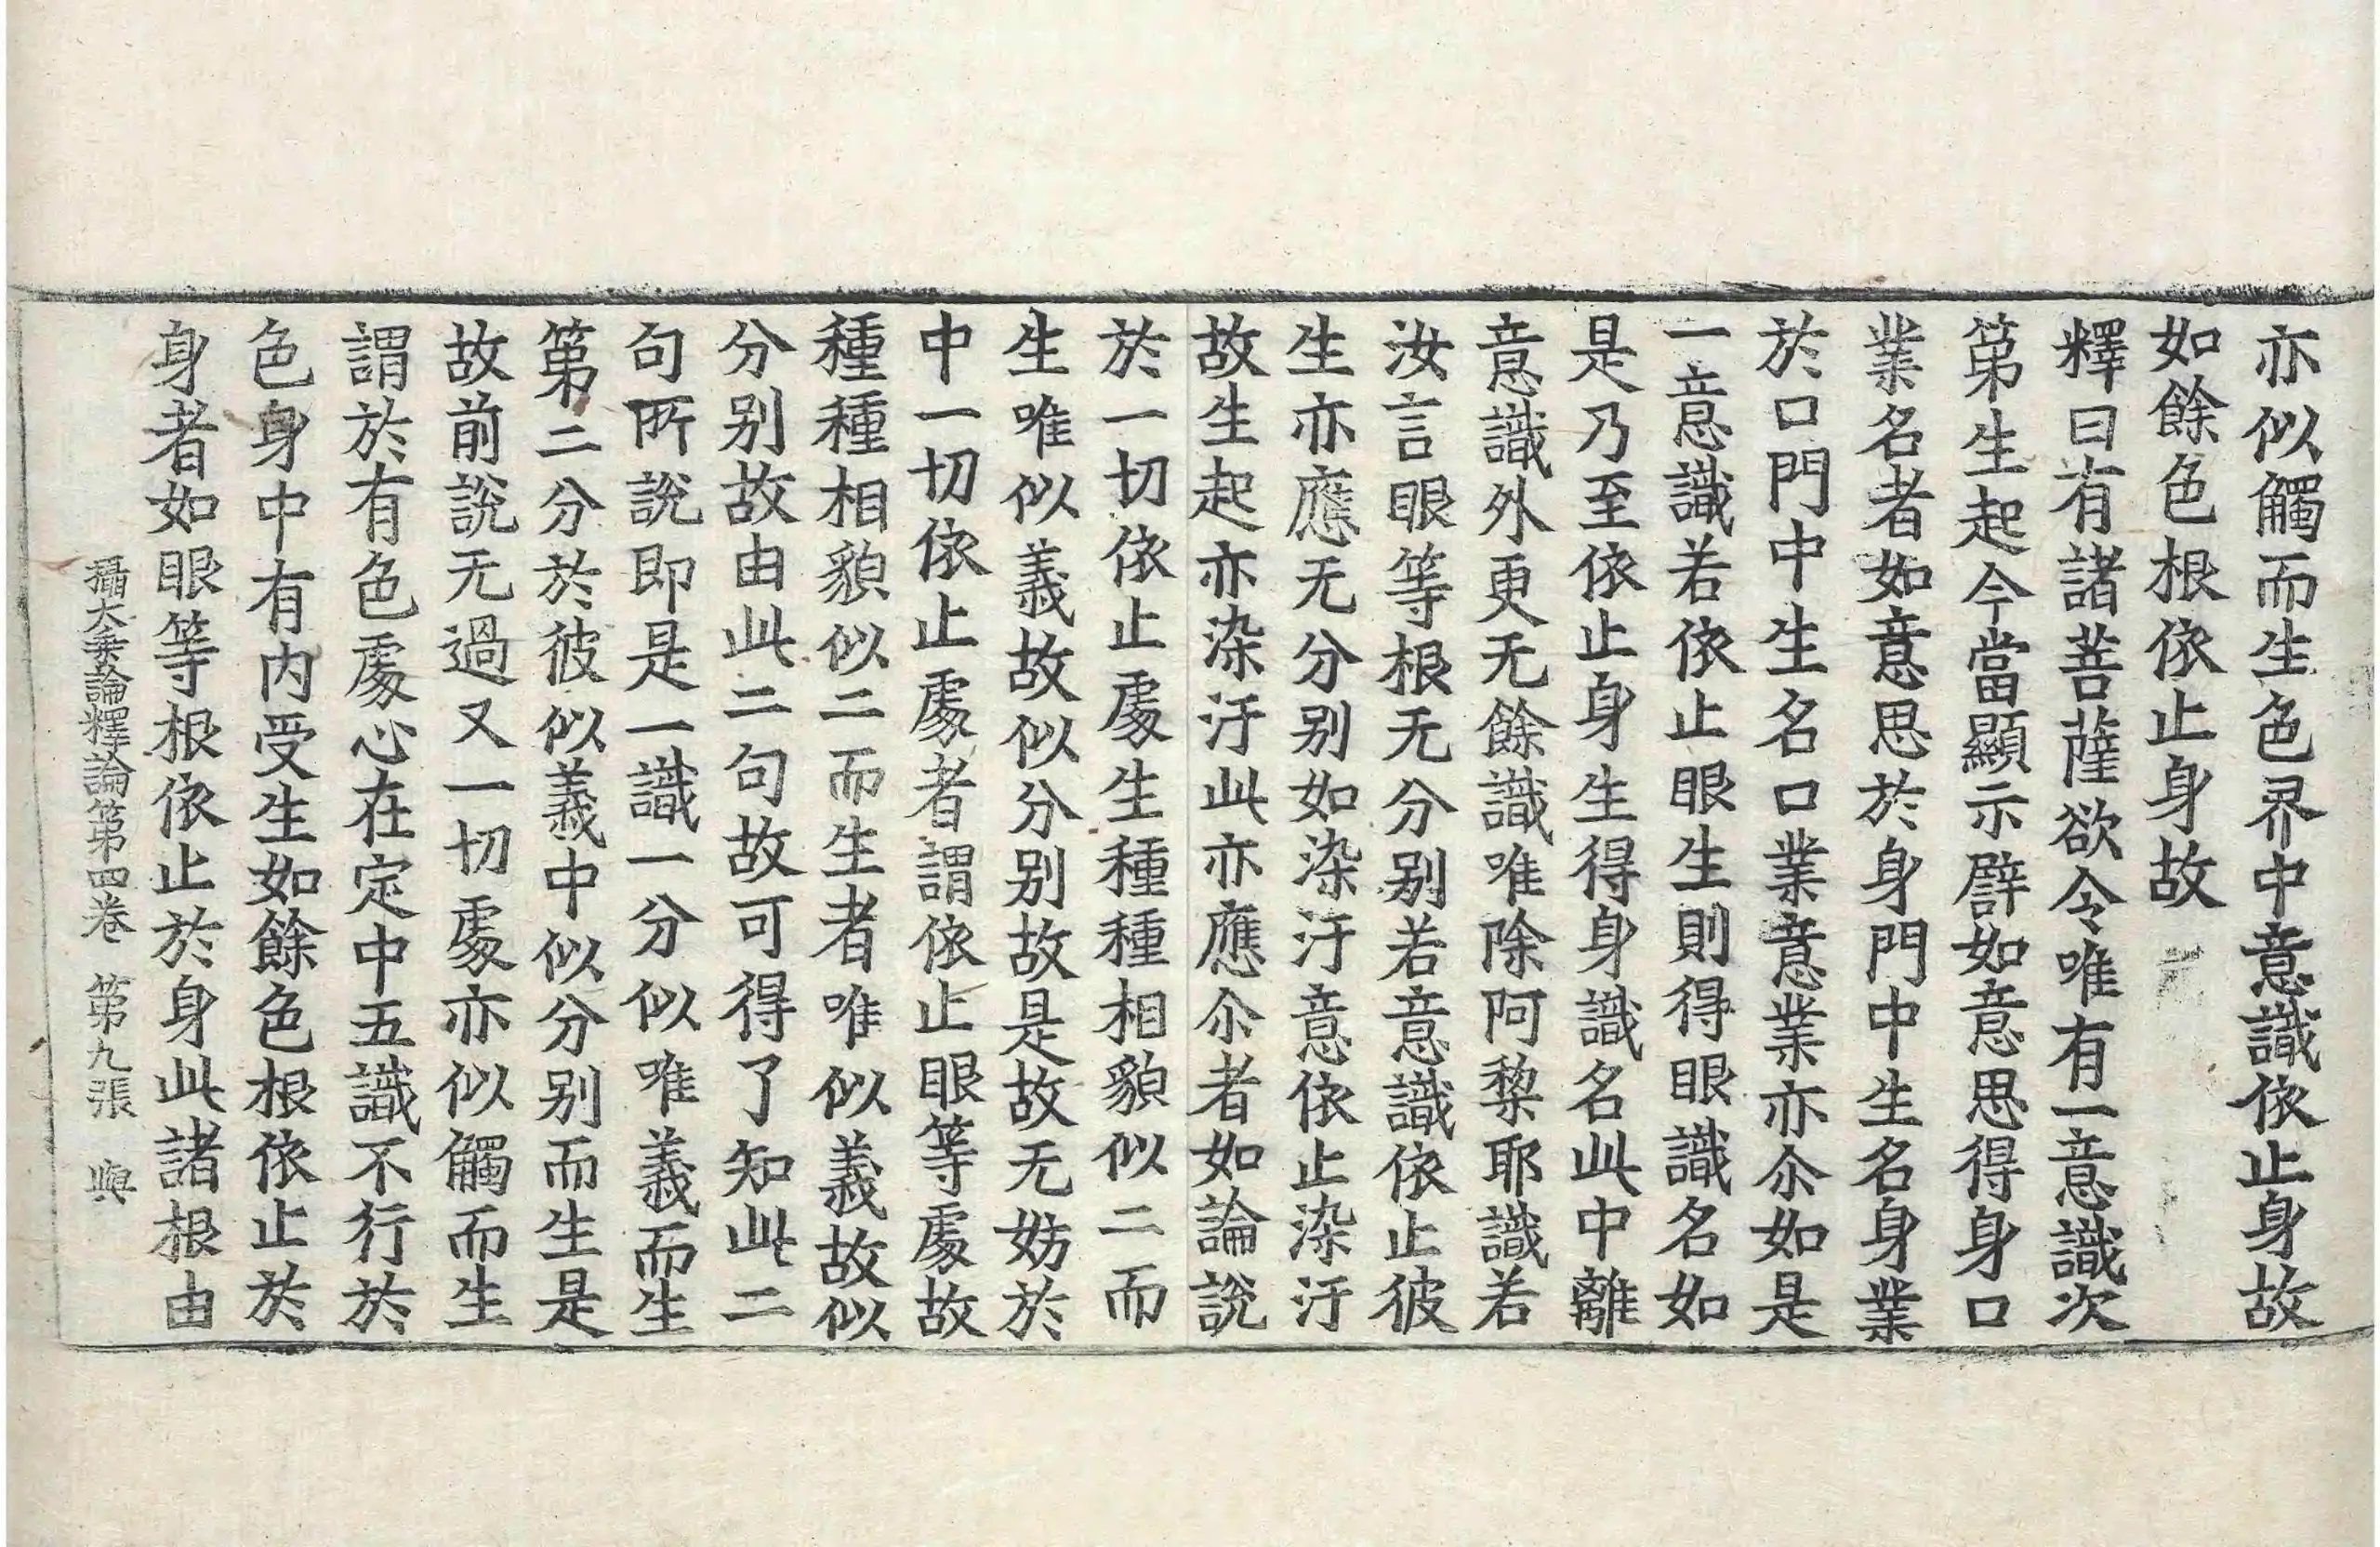 亦似觸而生色界中意識依止身故
如餘色根依止身故
釋曰有諸菩薩欲令唯有一意識次
第生起今當顯示譬如意思得身口
業名者如意思於身門中生名身業
於口門中生名口業意業亦尒如是
一意識若依止眼生則得眼識名如
是乃至依止身生得身識名此中離
意識外更无餘識唯除阿黎耶識若
汝言眼等根无分别若意識依止彼
生亦應无分别如染汙意依止染汙
故生起亦染汙此亦應尒者如論說
於一切依止處生種種相貌似二而
生唯似義故似分别故是故无妨於
中一切依止處者謂依止眼等處故
種種相貌似二而生者唯似義故似
分别故由此二句故可得了知此二
句所說即是一識一分似唯義而生
第二分於彼似義中似分别而生是
故前說无過又一切處亦似觸而生
謂於有色處心在定中五識不行於
色身中有内受生如餘色根依止於
身者如眼等根依止於身此諸根由
攝大乘論釋論第四卷 第九張 與